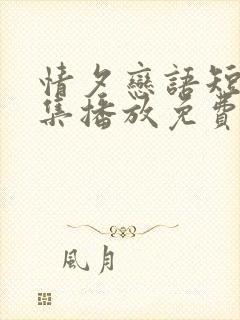 情夕戀語短
集播放免費
風月